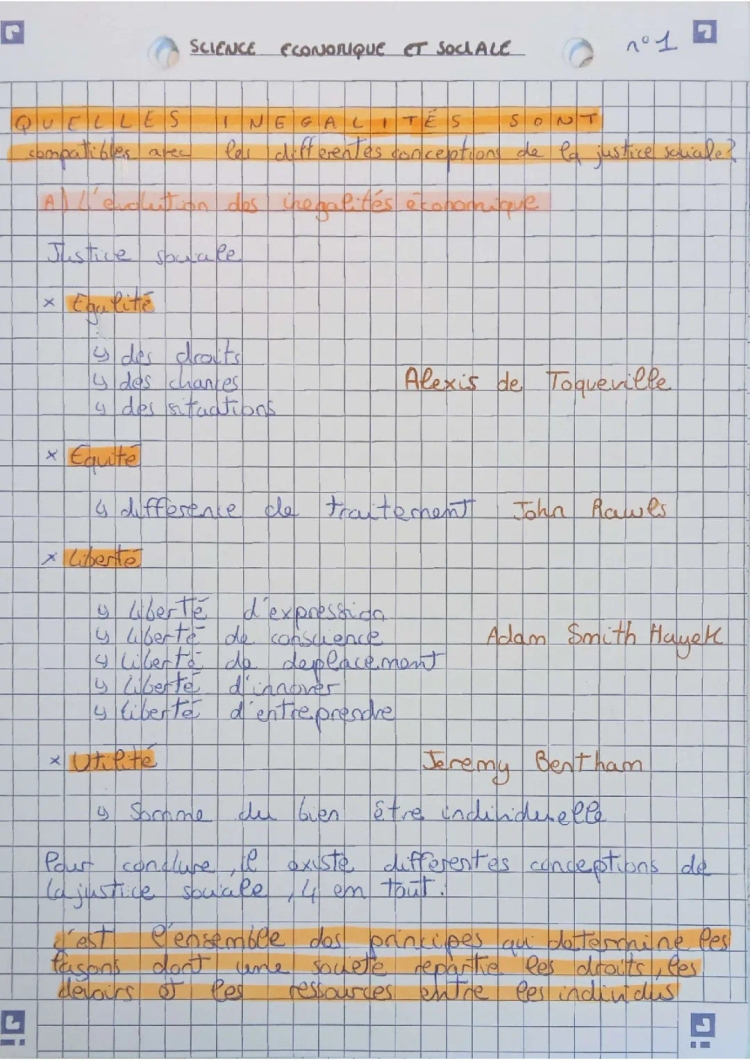 SCIENCE ECONORIQUE ET SOCIALE
n°1
QUELLES INEGALITÉS SONT
compatibles avec les differentes conceptions de la justice sociale?
A) L'évolution des inegalités économique
Justice sociale
× Egalité
↳ des droits
↳ des chances
Alexis de Toqueville
↳ des situations
× Equité
↳ difference de traitement John Rawls
× Liberté
↳ liberté d'expression
↳ liberté de conscience
Adam Smith Hayek
↳ liberté de deplacement
↳ liberté d'innover
↳ liberté d'entreprendre
× Utilité
Jeremy Bentham
↳ Somme du bien être individuelle
Pour conclure, il existe differentes conceptions de
la justice sociale, 4 em tout.
c'est l'ensemble des principes qui determine les
fasons dont une societé repartie les droits, les
devoirs et les ressources entre les individus